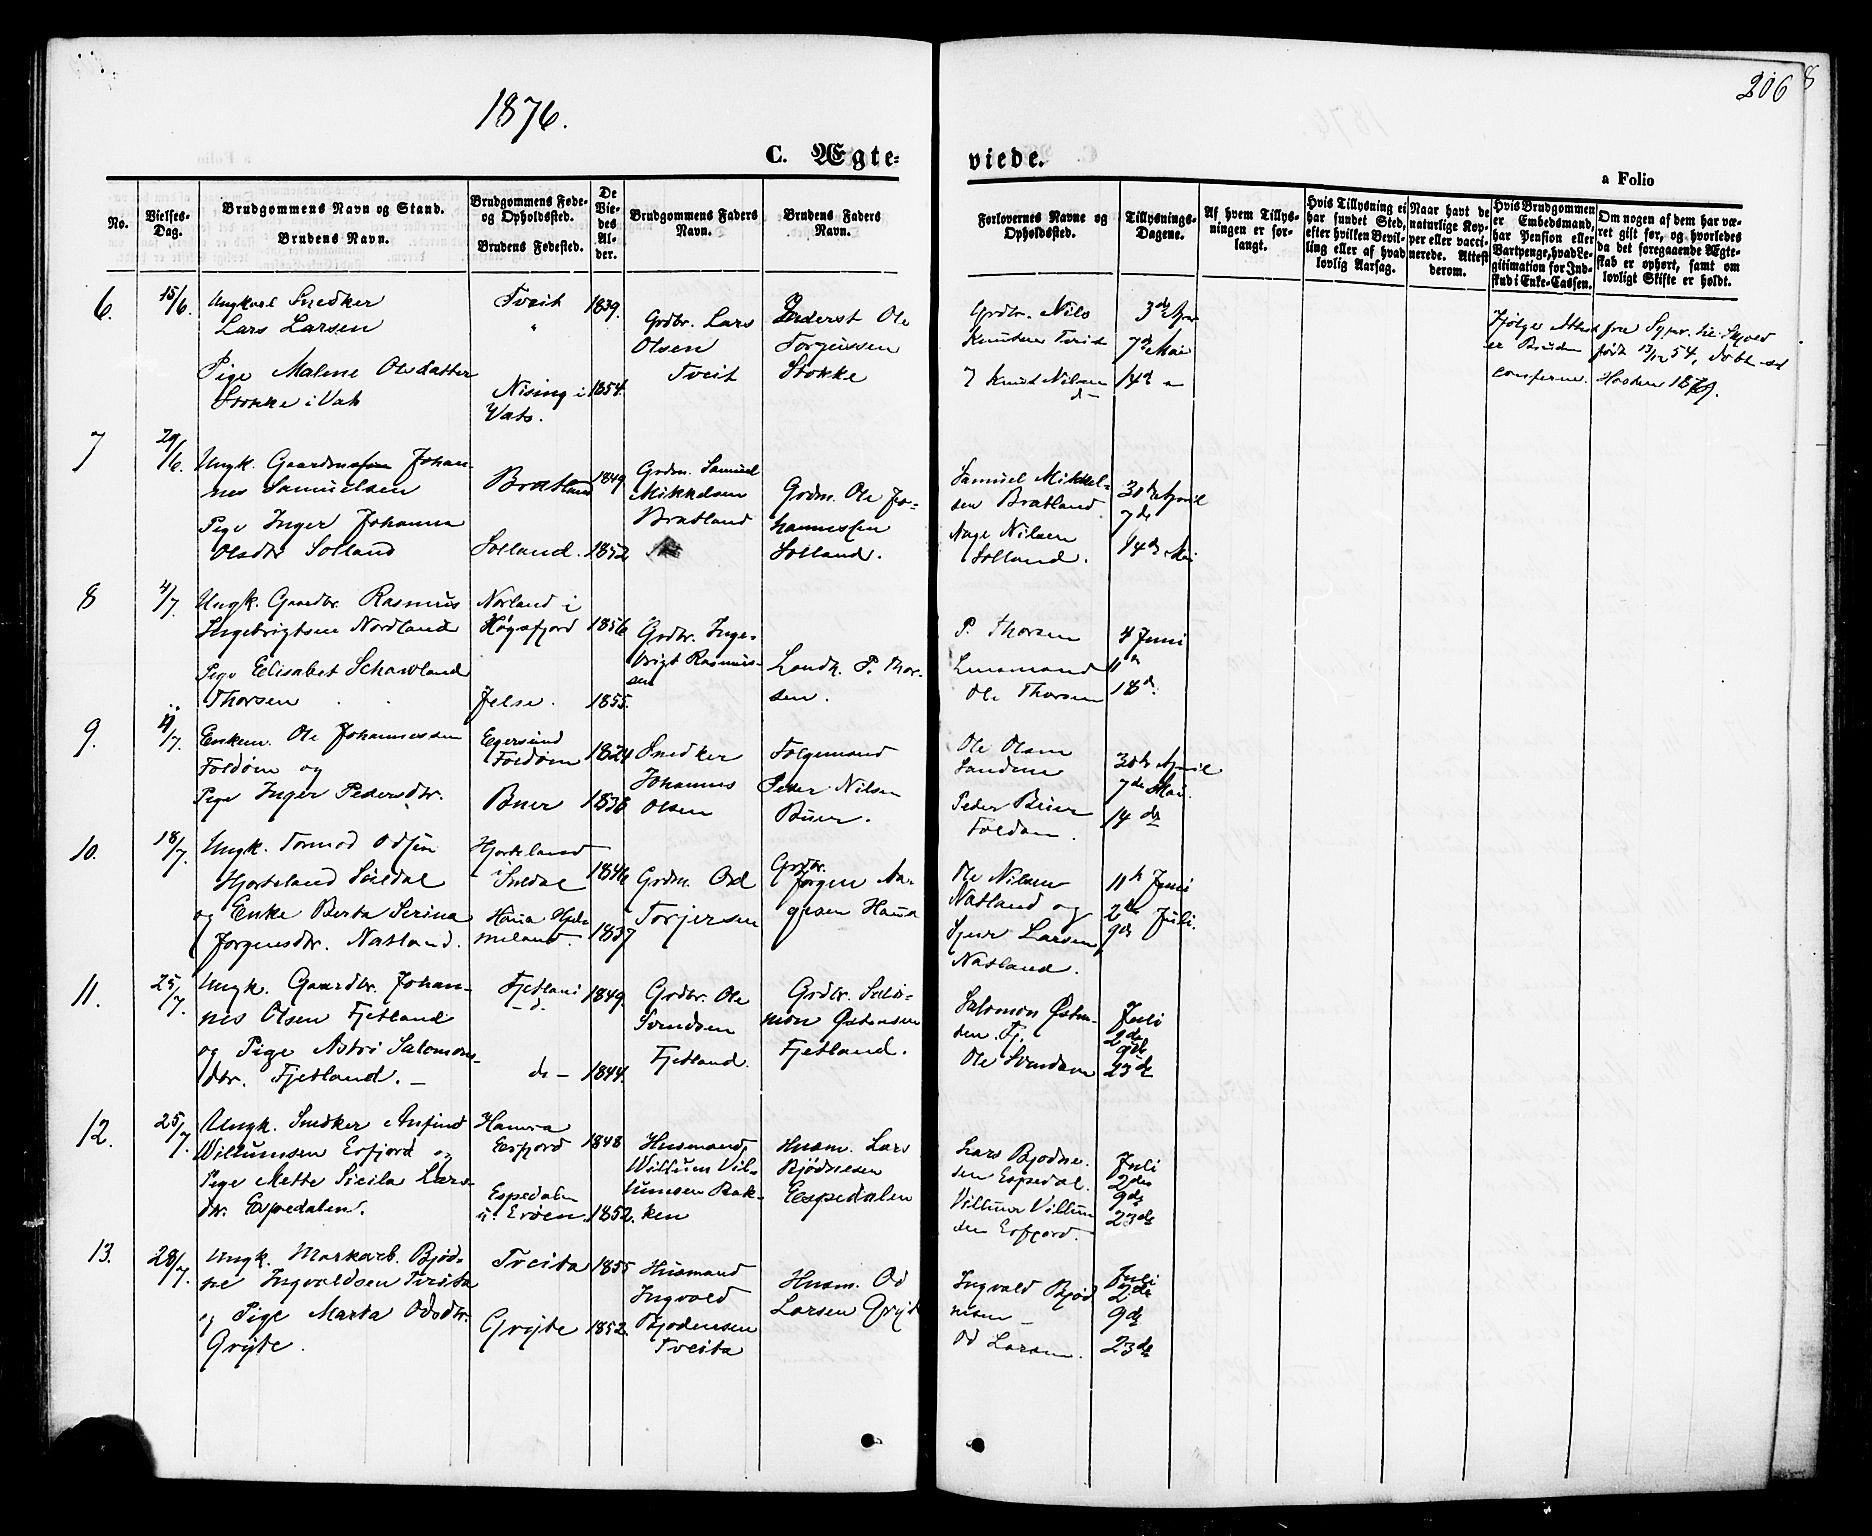 1876.
206
8
C. Ægte=
viede.
a Folio
No.
Vielses-Dag.
Brudgommens Navn og Stand.
Brudens Navn.
Brudgommens Føde- og Opholdssted.
Brudens Fødested.
De Vie-des Al-der.
Brudgommens Faders Navn.
Brudens Faders Navn.
Forlovernes Navne og Opholdssted.
Tillysnings-Dagene.
Af hvem Tillys-ningen er for-langt.
Hvis Tillysning ei har fundet Sted, efter hvilken Bevil-ling eller af hvad lovlig Aarsag.
Naar havt de naturlige Kop-per eller vacci-nerede. Attest derom.
Hvis Brudgommen er Embedsmand, har Pension eller Vartpenge, hvad Le-gitimation for Ind-skud i Enke-Cassen.
Om nogen af dem har væ-ret gift før, og hvorledes da det foregaaende Ægte-skab er ophørt, samt om lovligt Skifte er holdt.
6.
15/6.
Ungkarl Snedker
Lars Larsen
Pige Malene Olsdatter
Stokke i Vats
Tveit
"
Nising i
Vats.
1839.
1854.
Grdbr. Lars
Olsen
Tveit
Inderst Ole
Torgerssen
Stokke
Grdbr. Nils
Knutsen Tveit
Knud Nilsen
d-
3de Apr
7de Mai
14d "
Ifølge Attest fra Sgpr.
er Bruden født 54, døbt og
confirm. Høsten
7
29/6.
Ungk. Gaardmansøn Johan-
nes Samuelsen
Pige Inger Johanna
Olsdtr Solland
Bratland
Solland.
1849
1852
Grdm. Samuel
Mikkelsen
Bratland
Grdm. Ole Jo-
hannessen
Solland.
Samuel Mikkel-
sen Bratland
Aage Nilsen
Solland.
30te April
7de
14de Mai
8
4/7.
Ungk. Gaardbr. Rasmus
Ingebrigtsen Nordland
Pige Elisabet Schawland
Thorsen
Norland i
Høgsfjord
Jelse.
1856
1855.
Grdbr. Inge-
brigt Rasmus-
sen
Landh. P. Thor-
sen.
P. Thorsen
Lensmand
Ole Thorsen
4 Juni
11"
18d.
9.
11/7.
Enkem. Ole Johannessen
Foldøen og
Pige Inger Pedersdtr.
Egersund
Foldøen
Buer
1824
1838
Snedker
Johannes
Olsen
Folgemand
Peder Nilsen
Buer.
Ole Olsen
Sandene
Peder Buer
Foldøen.
30te April
7de Mai.
14 de
10.
18/7.
Ungk. Tormod Odsen
Hjorteland Suldal
og Enke Berta Serina
Jørgensdtr. Natland.
Hjorteland
Suldal
Haua Hjel-
meland.
1846
1837
Grdm. Od
Torjersen
Grdbr.
Jørgen Aa-
gesen Haua
Ole Nilsen
Natland og
Sjur Larsen
Natland.
11te Juni
2de Juli.
9de
11.
25/7.
Ungk. Gaardbr. Johan-
nes Olsen Fjetland
og Pige Astri Salomons-
dtr. Fjetland. -
Fjetland
-d.
do -
1849.
1844.
Grdbr. Ole
Svendsen
Fjetland.
Grdbr. Salo-
mon Østensen
Fjetland.
Salomon Østen-
sen. Fj.
Ole Svendsen
Juli
2de
9de
23de
12.
25/7.
Ungk. Snedker Anfind
Willumsen Erfjord og
Pige Mette Sicila Lars-
dtr. Espedalen.
Hamra
Erfjord
Espedalen
i Erøen.
1848
1852.
Husmand
Willum Vil-
lumsen Bak-
ken
Husm. Lars
Bjødnesen
Espedalen
Lars Bjodne-
sen Espedal.
Villum Villum
sen Erfjord.
Juli
2de
9de
23de
13.
28/7.
Ungk. Markarb. Bjød-
ne Ingvaldsen Tveita
og Pige Marta Odsdtr.
Grijte.
Tveita
Grijte
1855
1852.
Husmand
Ingvald
Bjodensen
Tveita
Husm. Od
Larsen Grijt
Ingvald Bjød
nesen -
Od Larsen.
Juli
2de
9de
23de